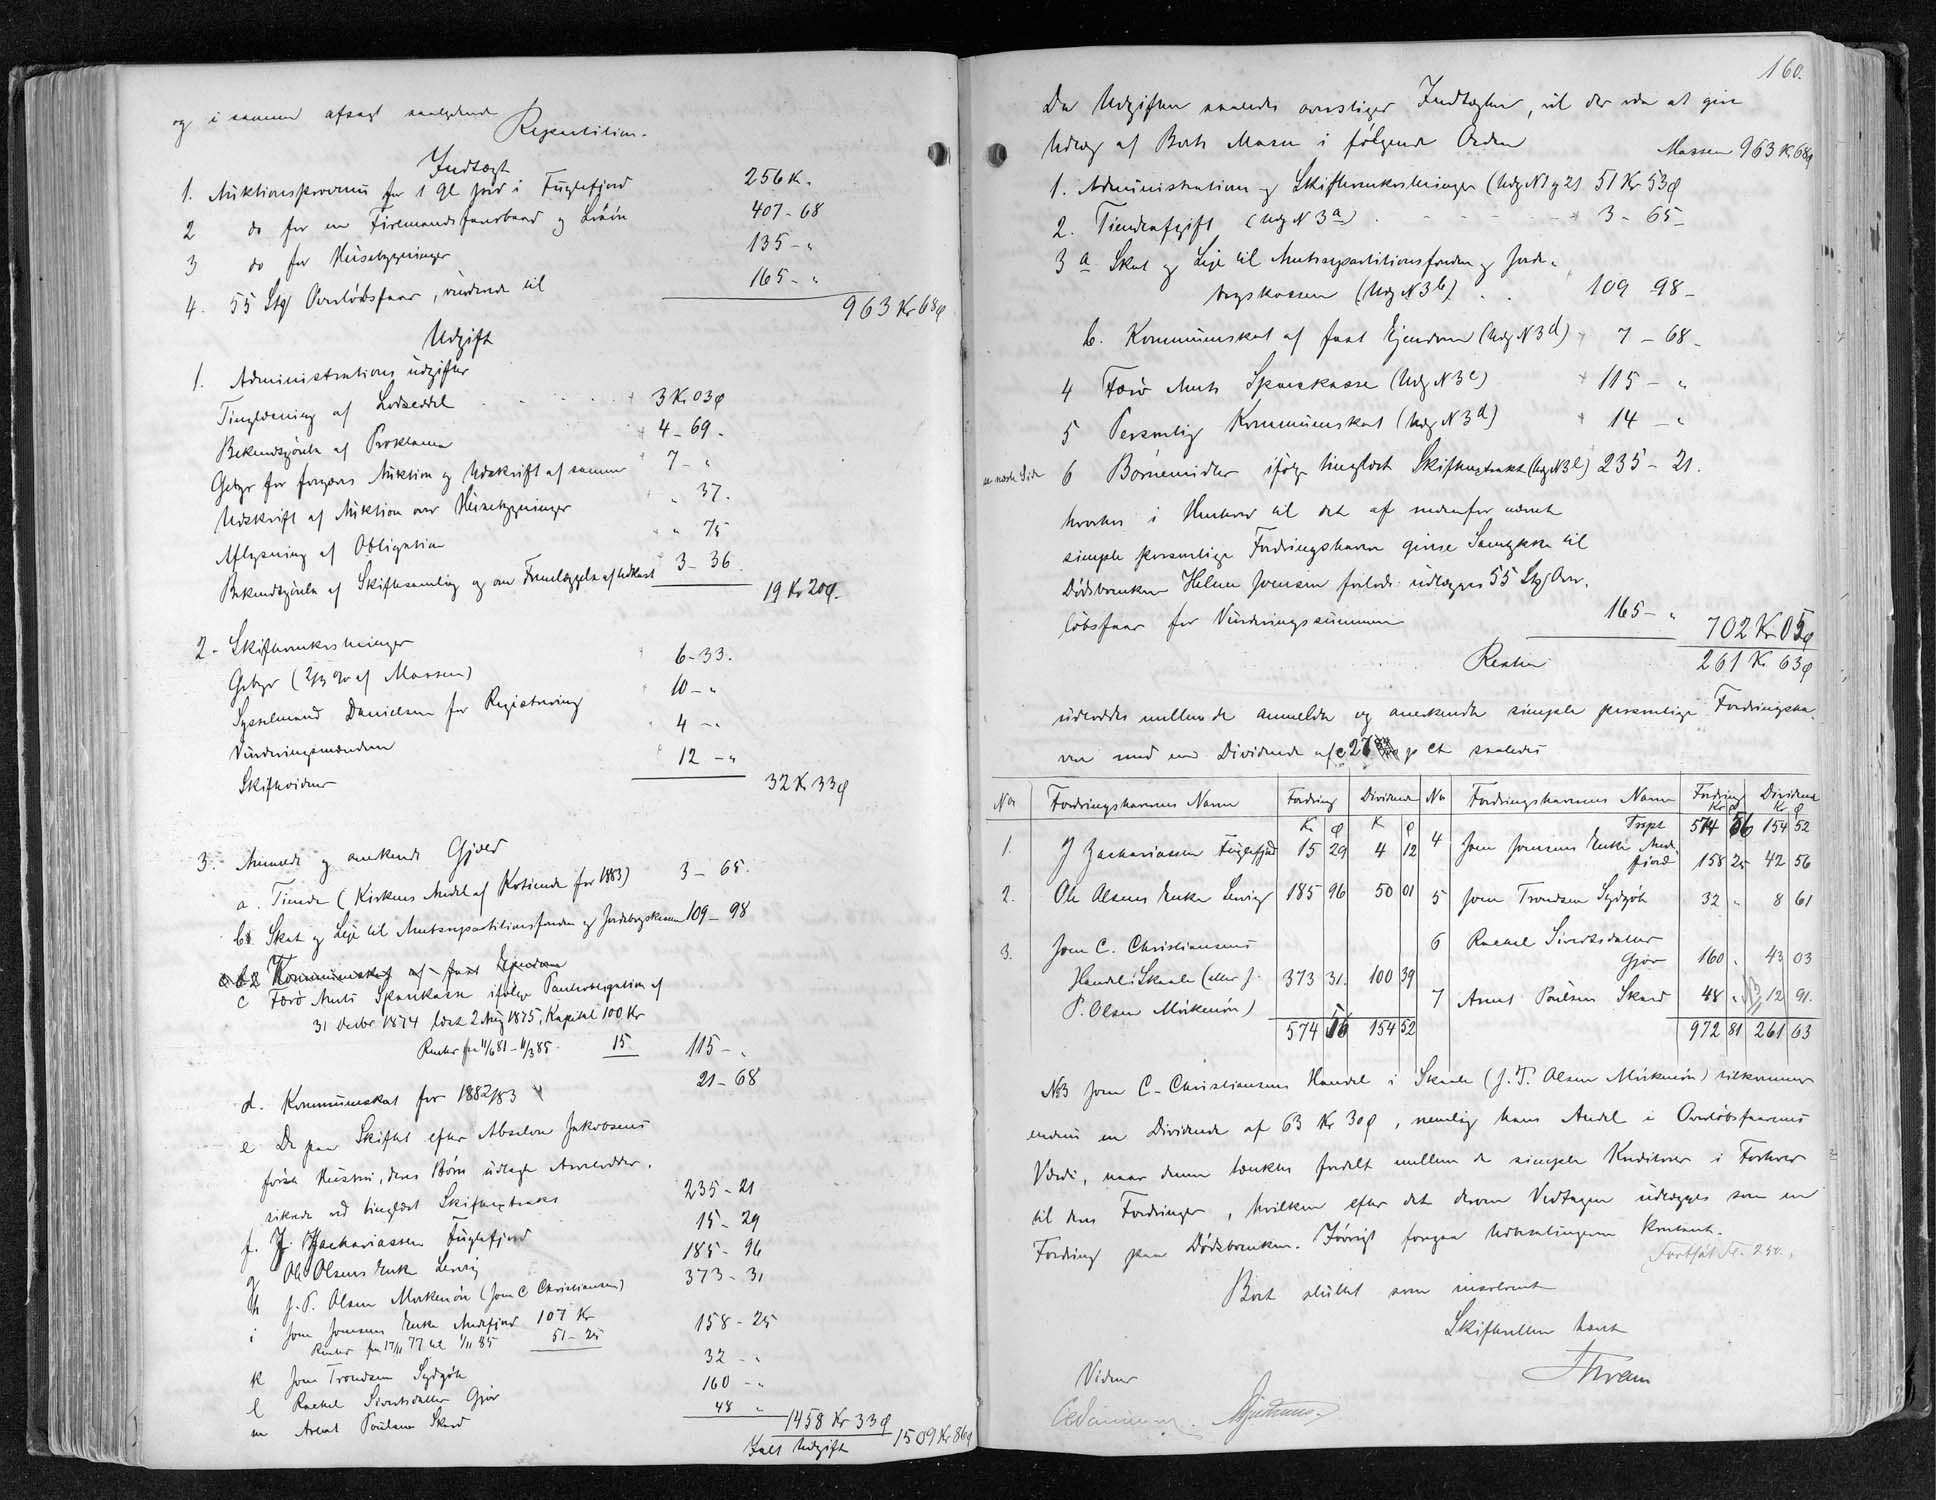 og i samme afsagt saalydende
Repartition.
Indtægt
1. Auktionsprovenu for 1 Gl Jord i Fuglefjord 256 K.
2 do for en Firemandsfarsbaad og Linen 407-68
3 do for Husebygninger 135-"
4. 55 Stk Overløbsfaar, vurderede til 165-"
963 Kr 68 ø
Udgift
1. Administrations udgifter
Tinglæsning af Lodseddel 3 Kr 03 ø
Bekendtgjørelse af Proklama 4-69.
Gebyr for forgæves Auktion og Udskrift af samme 7-"
Udskrift af Auktion over Husebygninger " 37.
Aflysning af Obligation " 75
Bekendtgjørelse af Skiftesamling og om Fremlæggelse af Udkast 3-36.
19 Kr 20 ø.
2. Skifteomkostninger
Gebyr (2/3 % af Massen) 6-33.
Sysselmand Danielsen for Registrering 10-"
Vurderingsmændene 4-"
Skiftevidner 12-"
32 Kr 33 ø
3. Anmeldt og anerkendt Gjæld
a. Tiende (Kirkens Andel af Kotiende for 1883) 3-65.
b. Skat og Leje til Amtsrepartitionsfonden og Jordebogskassen 109-98
Kommuneskat af fast Ejendom
c Færø Amts Sparekasse ifølge Panteobligation af
31 Decbr 1874 læst 2 Aug 1875, Kapital 100 Kr
Renter fra 11/6 81 - 11/3 85 15 115-"
d. Kommuneskat for 1882/83 21-68
e De paa Skiftet efter Absalon Jakobsens
første Hustru, deres Børn udlagte Arvelodder,
sikrede ved tinglæst Skifteextrakt 235-21
f. J. Zachariassen Fuglefjord 15-29
g Ole Olsens Enke Lervig 185-96
h J. P. Olsen Mørkenøn (Joen C Christiansen) 373-31
i Joen Joensens Enke Andefjord 107 Kr
Renter fra 17/11 77 til 1/11 85 51-25 158-25
k Joen Trondsen Sydgøte 32-"
l Rachel Sivertsdatter Gjov 160-"
m Arent Poulsen Skard 48 "
1458 Kr 33 ø
Ialt Udgift 1509 Kr 86 ø
160.
Da Udgiften saaledes overstiger Indtægten, vil der være at give
Udlæg af Boets Masse i følgende Orden
Massen 963 K 68 ø
1. Administrations og Skifteomkostninger (Udg N 1 og 2) 51 Kr 53 ø
2. Tiendeafgift (Udg N 3a) 3-65-
3 a. Skat og Leje til Amtsrepartitionsfonden og Jorde-
bogskassen (Udg N 3b) 109 98-
b. Kommuneskat af fast Ejendom (Udg N 3d) 7-68-
4 Færø Amts Sparekasse (Udg N 3c) 115-"
5 Personlig Kommuneskat (Udg N 3d) 14-"
se næste Side 6 Børnemidler ifølge tinglæst Skifteextrakt (Udg N 3e) 235-21.
hvorhos i Henhold til det af nedenfor nævnte
simple personlige Fordringshavere givne Samtykke til
Dødsboenken Helene Joensen forlods udlægges 55 Stk Over-
løbsfaar for Vurderingssummen 165-" 702 Kr 05 ø
Resten 261 K 63 ø
udloddes mellem de anmeldte og anerkendte simple personlige Fordringsha-
vere med en Dividende af c 26 pCt saaledes
No Fordringshavernes Navne Fordring Dividende No Fordringshavernes Navne Fordring Dividende
Kr ø K ø Kr ø Kr ø
Trspt 574 56 154 52
1. J Zachariassen Fuglefjord 15 29 4 12 4 Joen Joensens Enke Ande-
fjord 158 25 42 56
2. Ole Olsens Enke Lervig 185 96 50 01 5 Joen Trondsen Sydgøte 32 " 8 61
3. Joen C. Christiansens 6 Rachel Sivertsdatter
Handel i Skaale (eller J. 373 31. 100 39 Gjov 160 " 43 03
P. Olsen Mørkenøn) 7 Arent Poulsen Skard 48 " 12 91.
574 56 154 52 972 81 261 63
No 3 Joen C. Christiansens Handel i Skaale (J. P. Olsen Mørkenøn) tilkommer
endnu en Dividende af 63 Kr 30 ø, nemlig hans Andel i Overløbsfaarenes
Værdi, naar denne tænkes fordelt mellem de simple Kreditorer i Forhold
til deres Fordringer, hvilken efter det derom Vedtagne udlægges som en
Fordring paa Dødsboenken. Iøvrigt foregaa Udbetalingerne kontant.
Fortsat Fl. 250.
Boet sluttet som insolvent
Skifteretten hævet
Vidner